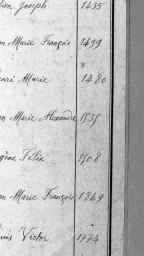 Joseph 1435
Marie François 1499
Marie 1480
Marie Alexandre 1535
Félix 1508
Marie François 1349
Victor 1774